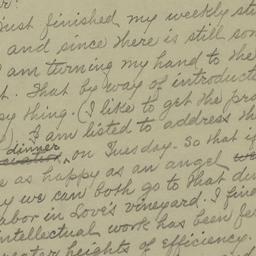 r!
Just finished my weekly st
and since there is still so
am turning my hand to the
t. That by way of introduct
sy thing. (I like to get the pre
). I am listed to address the
dinner
on Tuesday. So that if
e as happy as an angel we
y we can both go to that du
labor in Love's vineyard. I find
intellectual work has been fe
reater heights of efficiency.